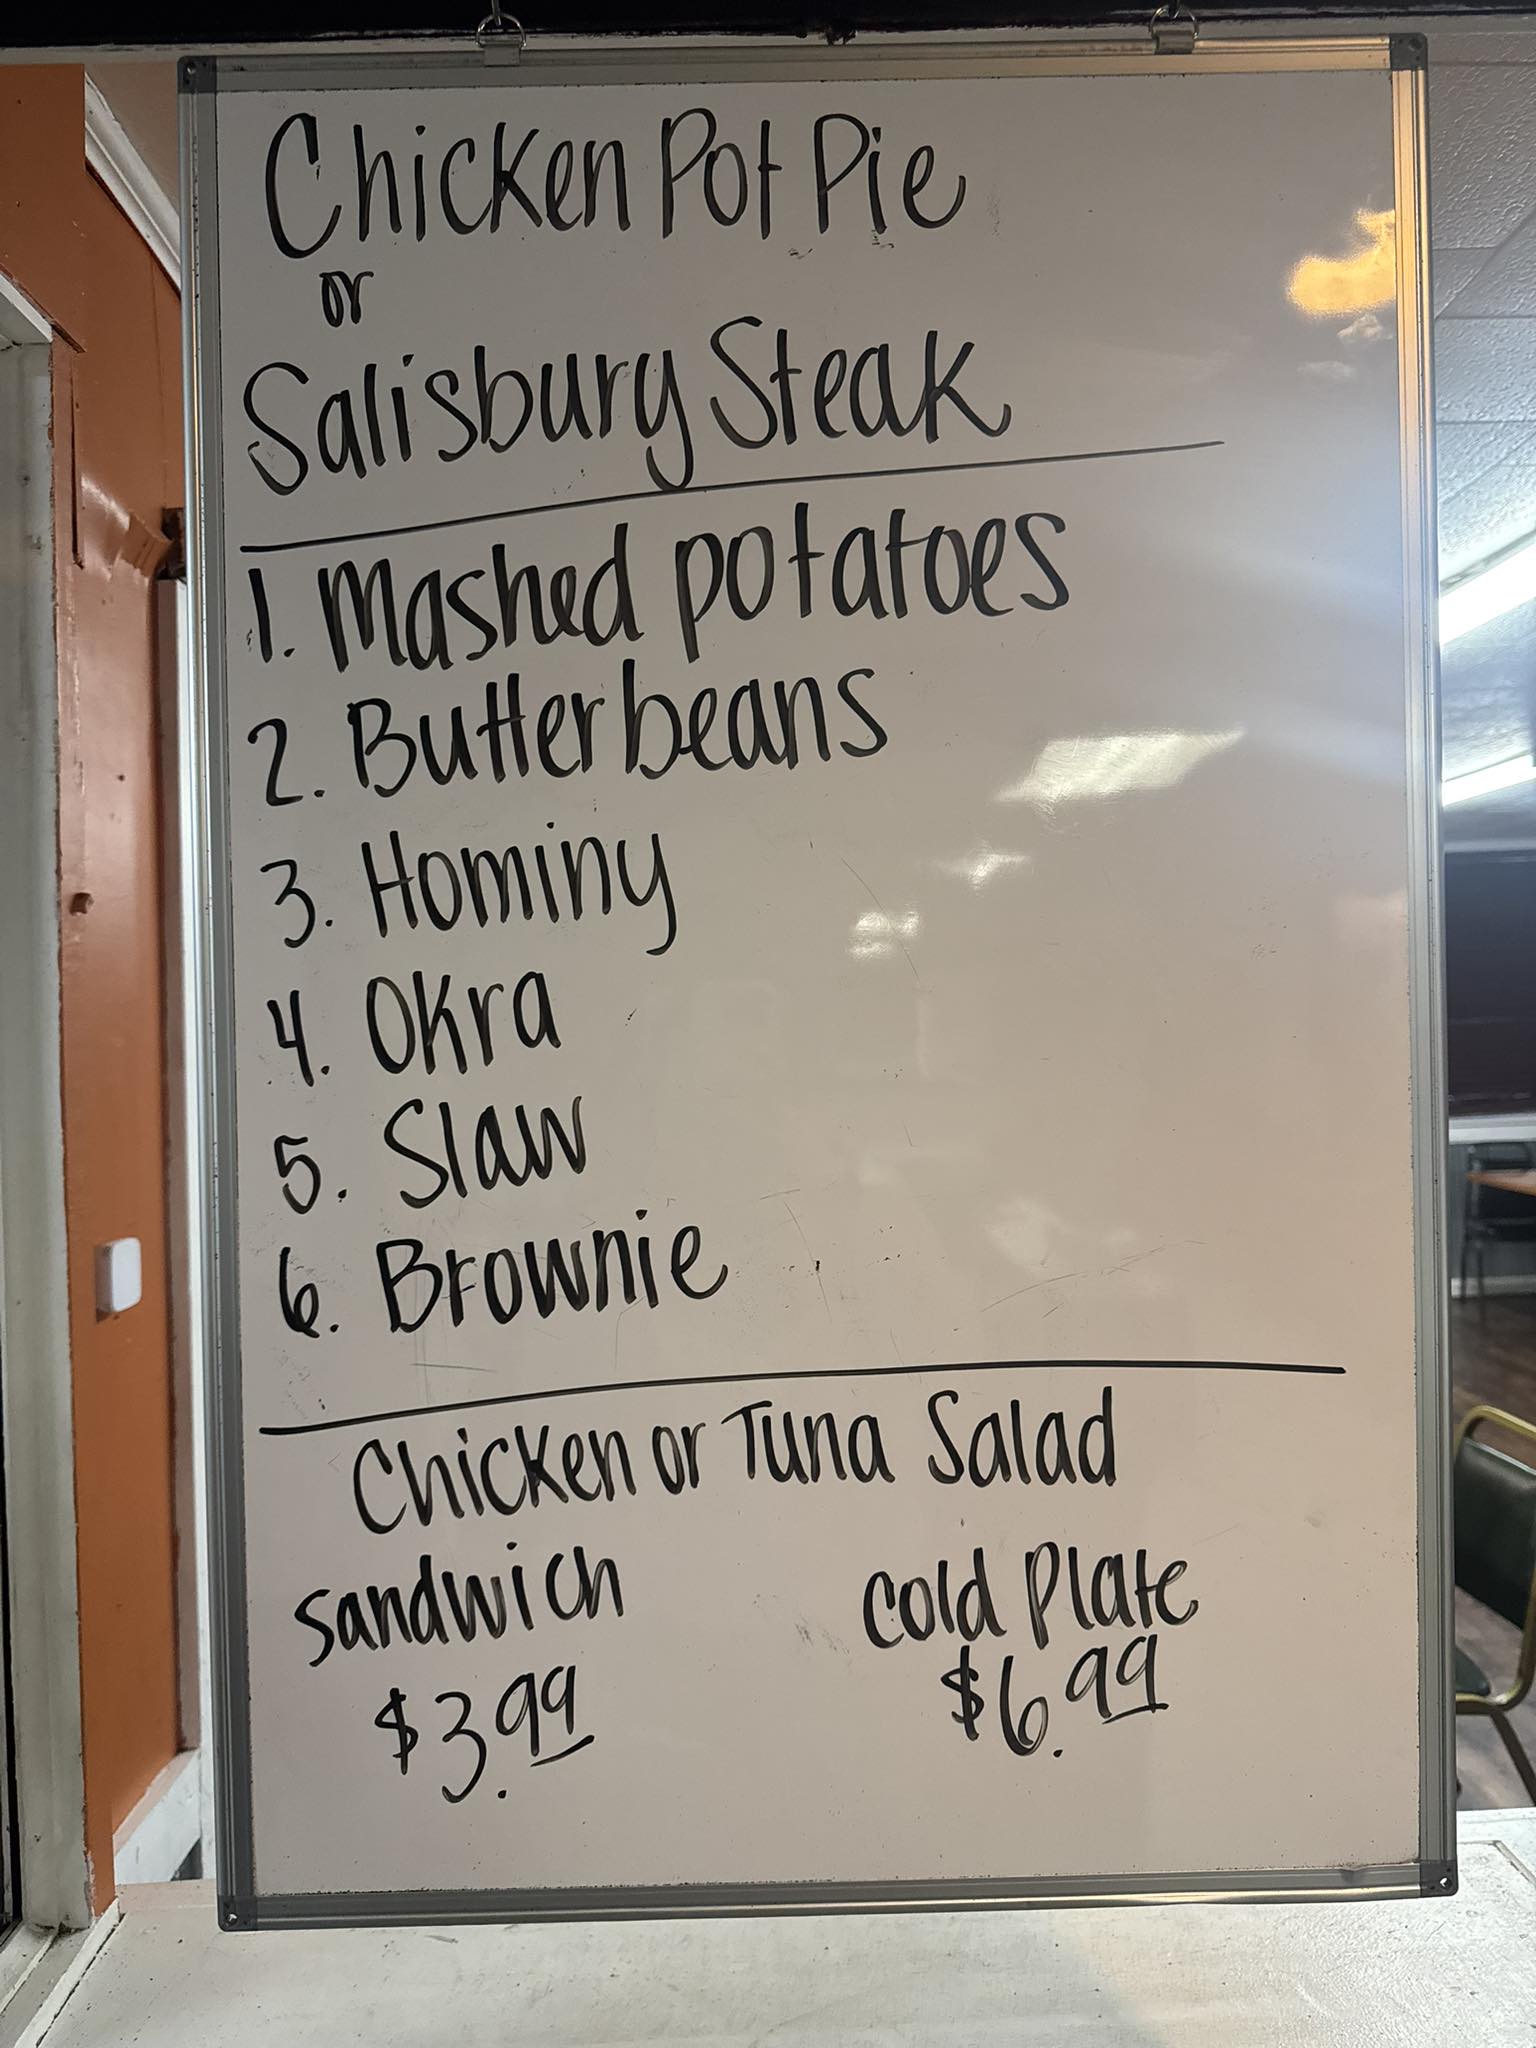 Chicken Pot Pie
or
Salisbury Steak
1. Mashed potatoes
2. Butterbeans
3. Hominy
4. Okra
5. Slaw
6. Brownie
Chicken or Tuna Salad
Sandwich Cold Plate
$3.99 $6.99